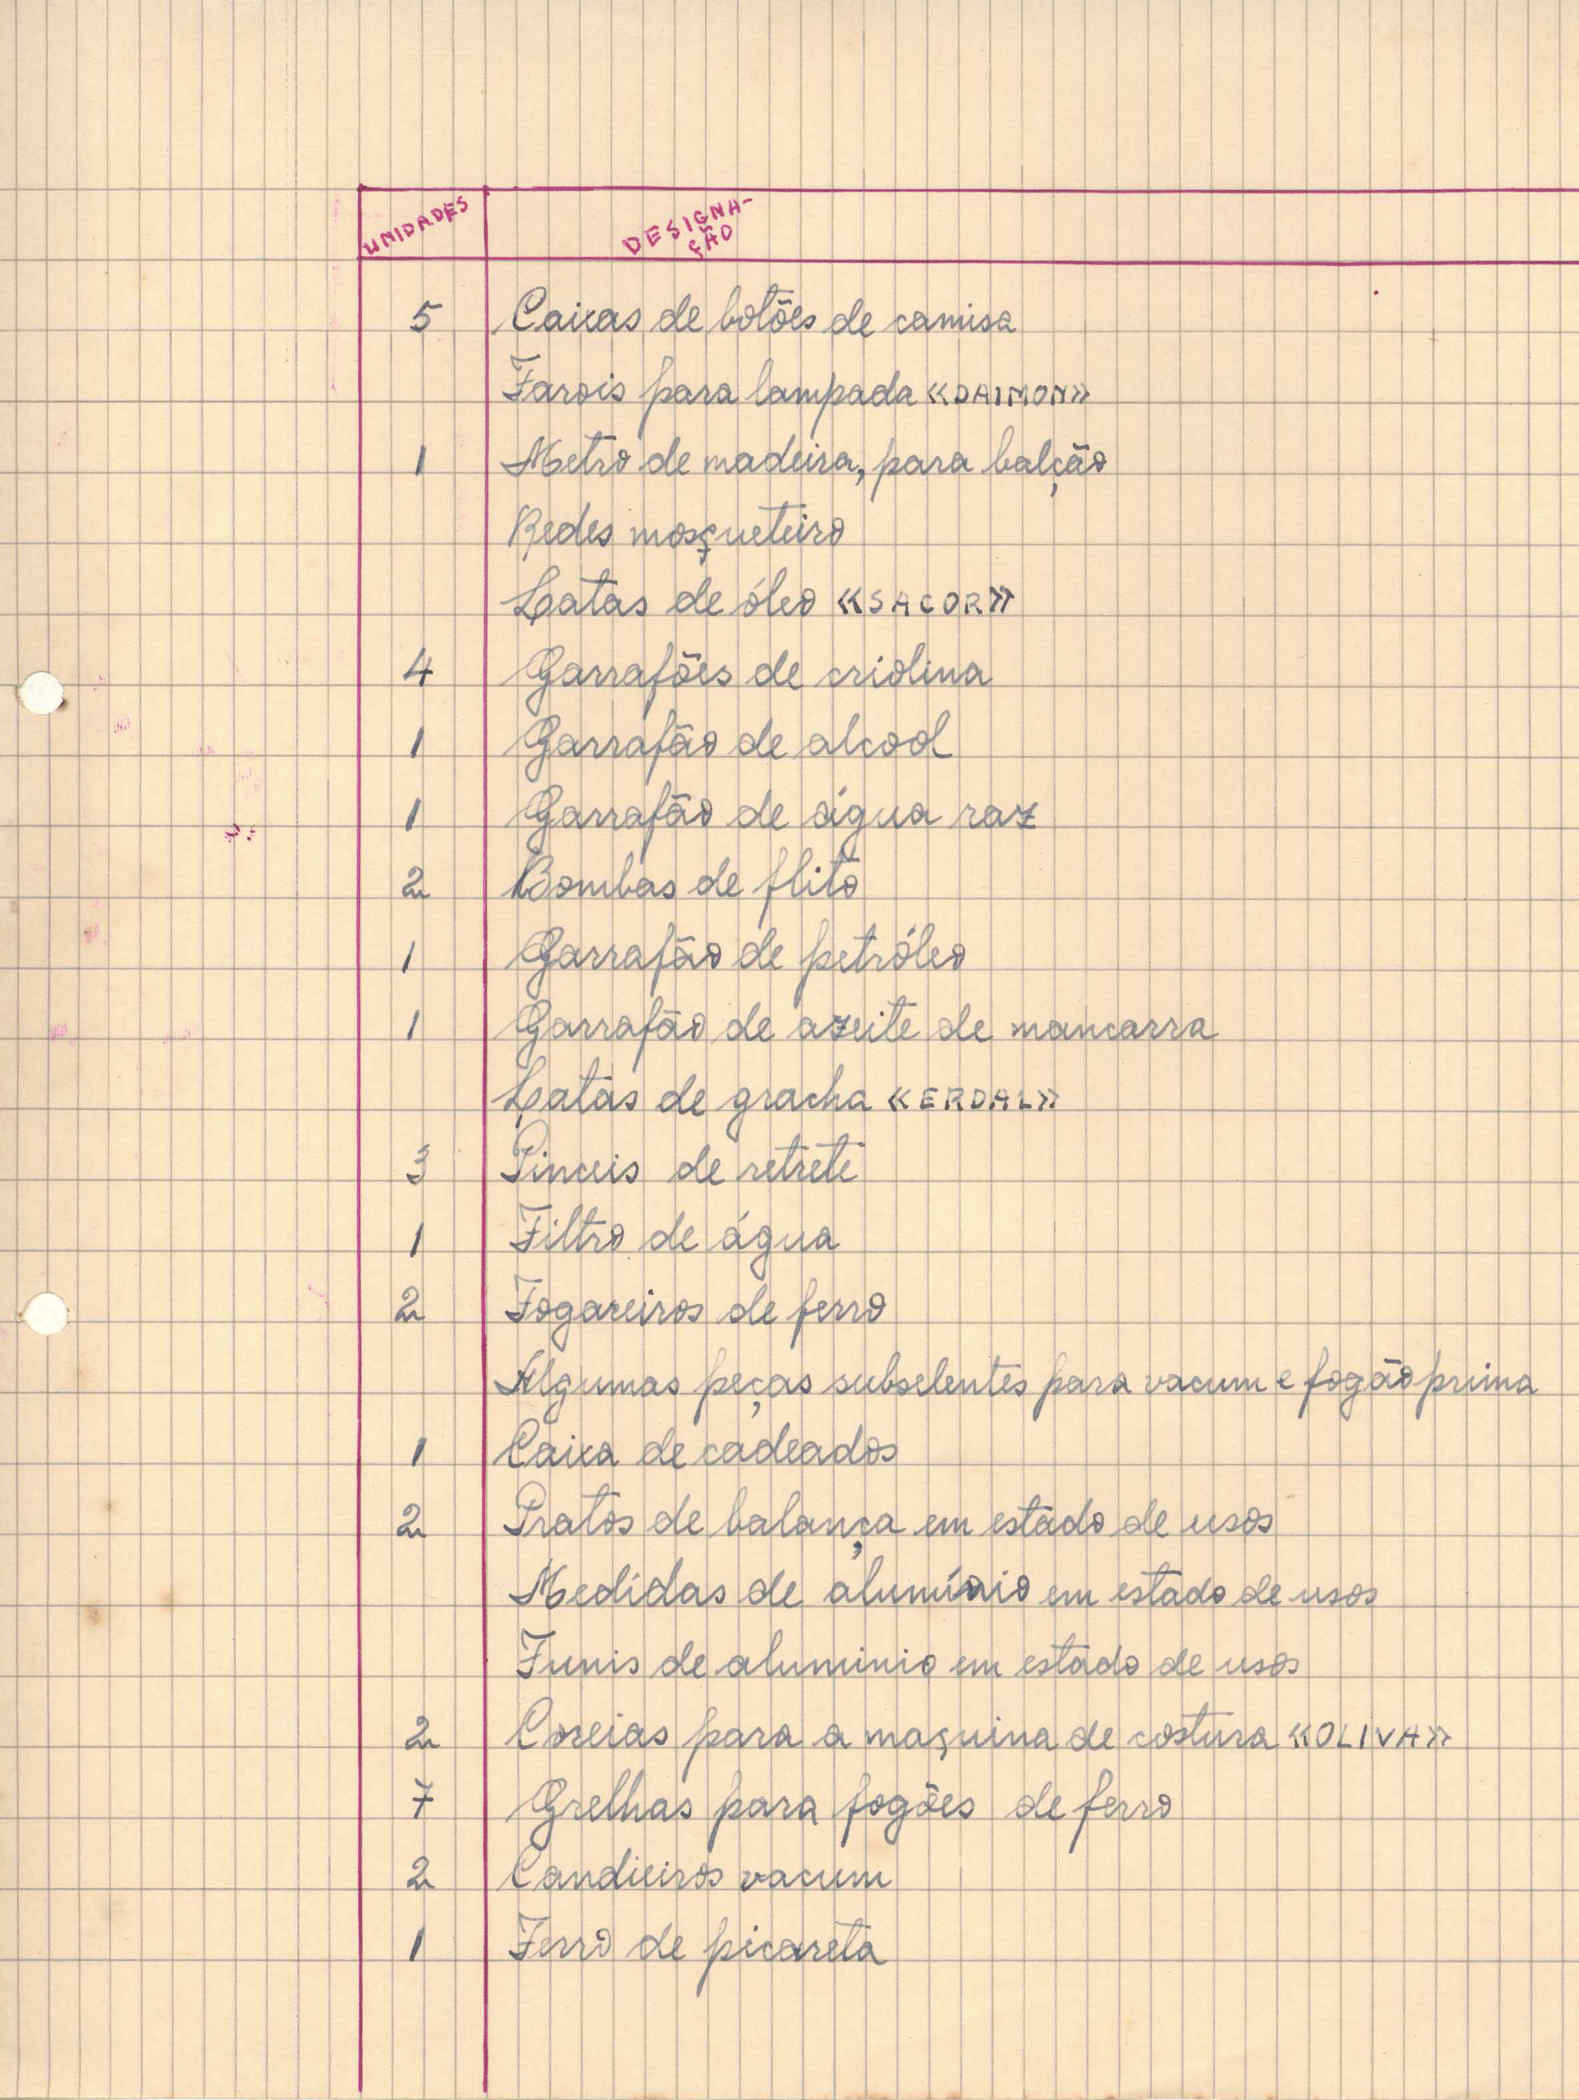 UNIDADES DESIGNA-
ÇÃO
5 Caixas de botões de camisa
Farois para lampada «DAIMON»
1 Metro de madeira, para balção
Redes mosqueteiro
Latas de óleo «SACOR»
4 Garrafões de criolina
1 Garrafão de alcool
1 Garrafão de água raz
2 Bombas de flito
1 Garrafão de petróleo
1 Garrafão de azeite de mancarra
Latas de gracha «ERDAL»
3 Pinceis de retrete
1 Filtro de água
2 Fogareiros de ferro
Algumas peças subselentes para vacum e fogão prima
1 Caixa de cadeados
2 Pratos de balança em estado de usos
Medidas de alumínio em estado de usos
Funis de aluminio em estado de usos
2 Coreias para a maquina de costura «OLIVA»
7 Grelhas para fogões de ferro
2 Candieiros vacum
1 Ferro de picareta